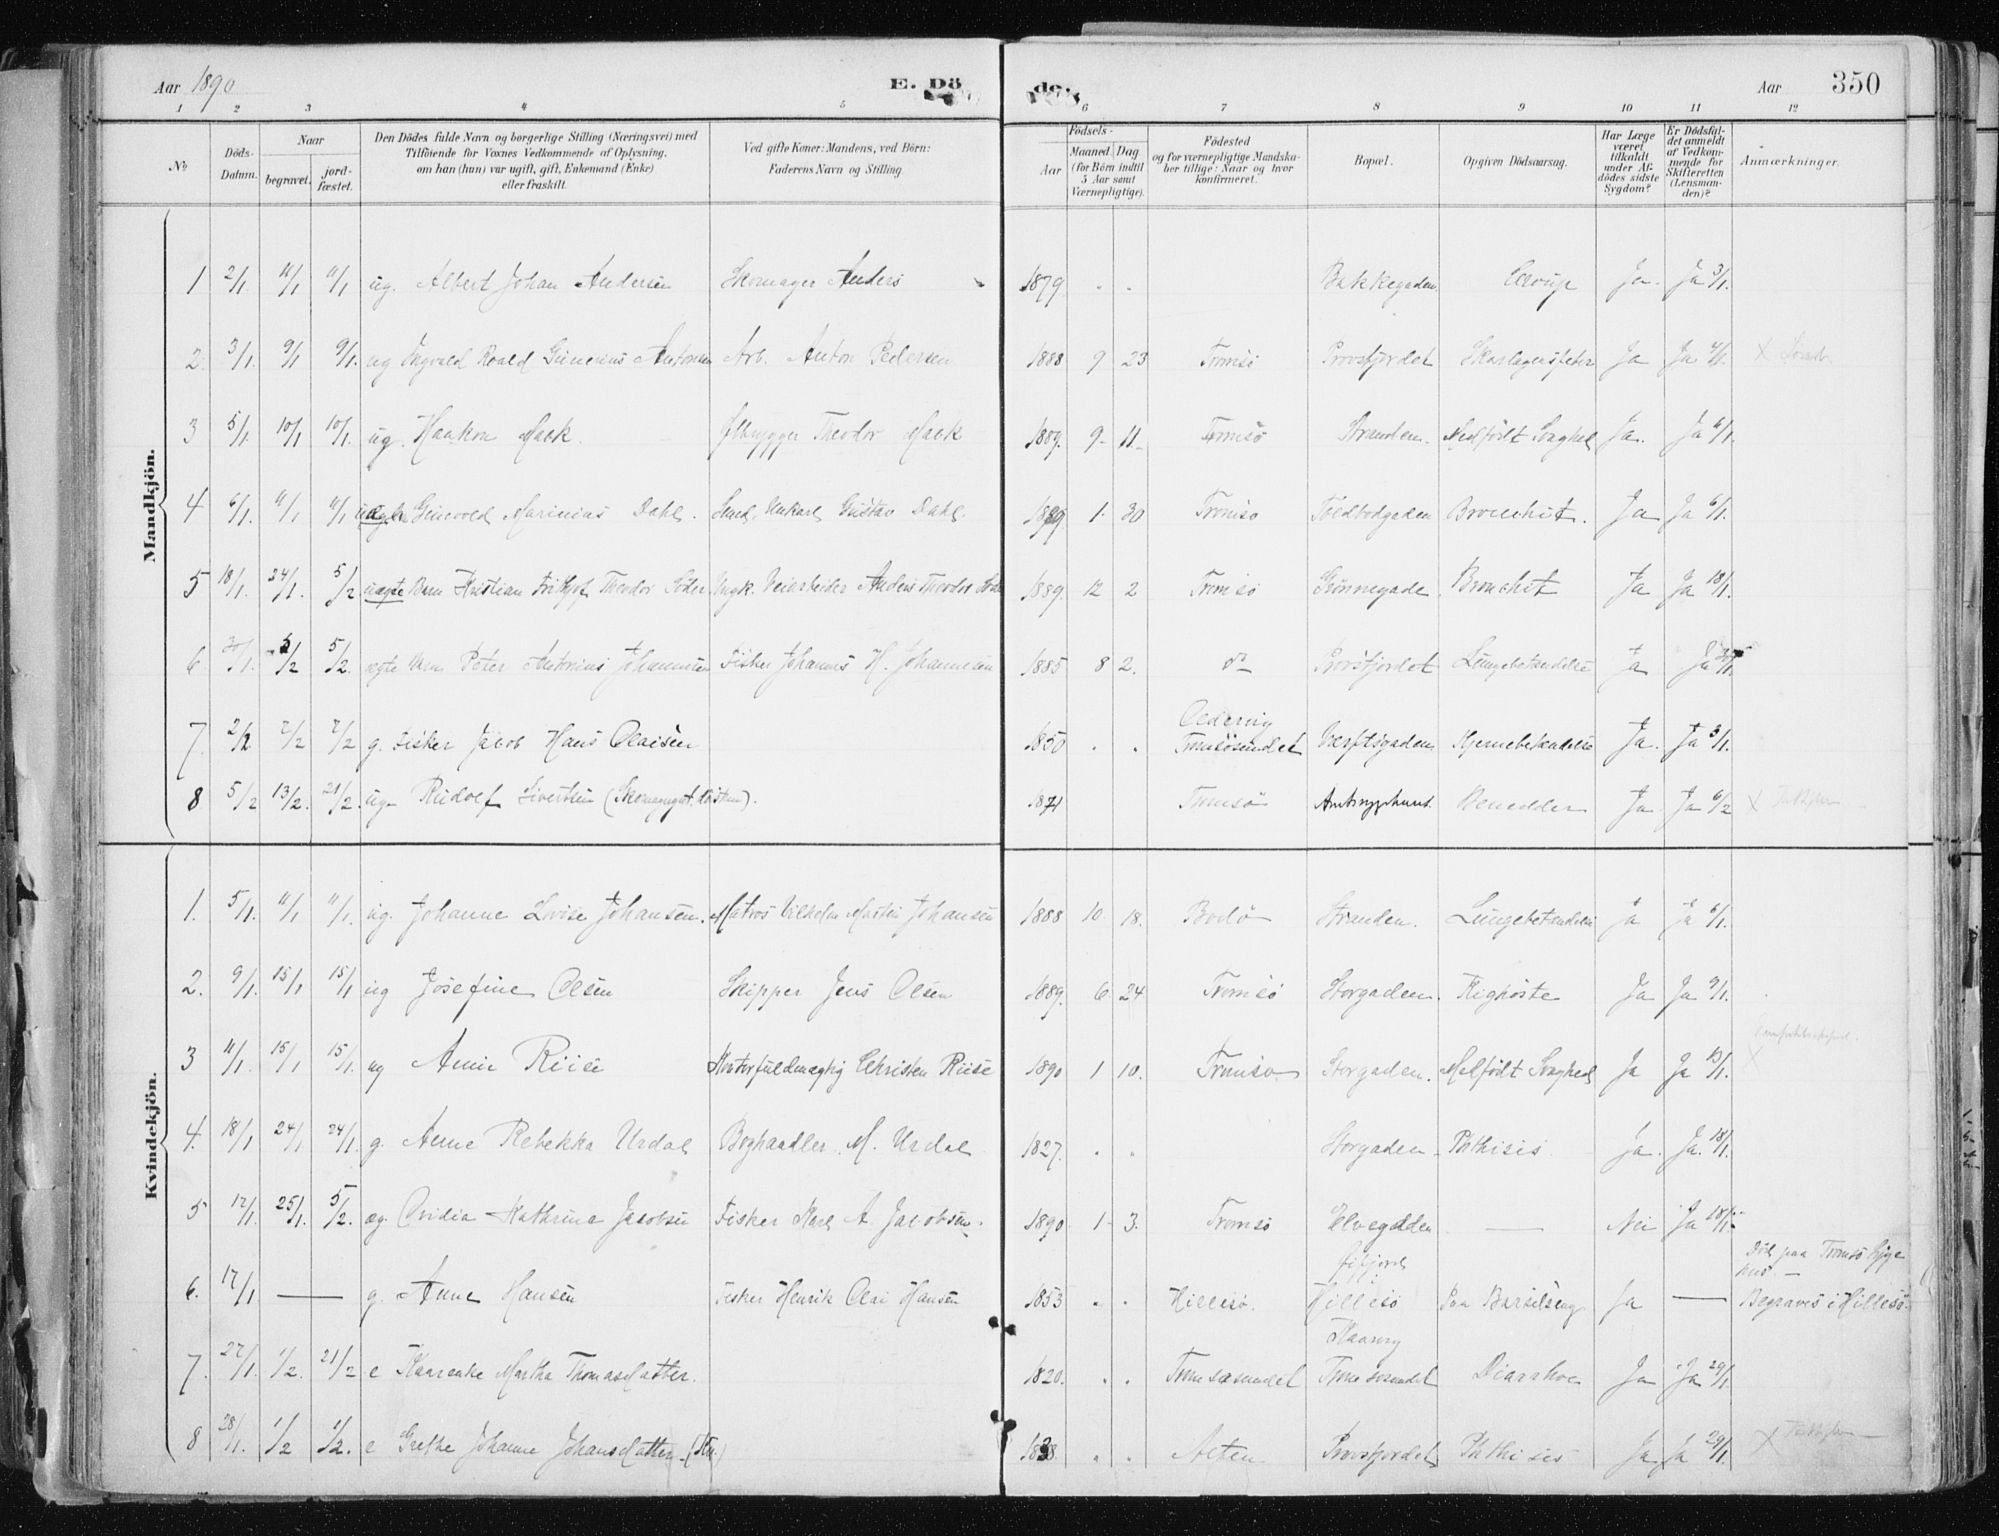 Aar 1890 E. Dö de. Aar 350
1 2 3 4 5 6 7 8 9 10 11 12
№ Döds-Datum. Naar begravet. jord-fæstet. Den Dödes fulde Navn og borgerlige Stilling (Næringsvei) med Tilföiende for Voxnes Vedkommende af Oplysning, om han (hun) var ugift, gift, Enkemand (Enke) eller fraskilt. Ved gifte Koner: Mandens, ved Börn: Faderens Navn og Stilling. Födsels- Aar Maaned Dag (for Börn indtil 5 Aar samt Værnepligtige). Födested og for værnepligtige Mandskaber tillige: Naar og hvor konfirmeret. Bopæl. Opgiven Dödsaarsag. Har Læge været tilkaldt under Afdödes sidste Sygdom? Er Dödsfaldet anmeldt af Vedkommende for Skifteretten (Lensmanden)? Anmærkninger.
Mandkjön.
1 2/1 11/1 11/1 ug. Albert Johan Andersen Skomager Anders 1879 " " Bakkegaden Croup Ja. Ja 3/1.
2. 3/1. 9/1 9/1. ug Roald Antonsen Arb. Anton Pedersen 1888 9 23 Tromsö Provstjordet Skarlagensfeber Ja Ja
3 5/1. 10/1 10/1. ug. Haakon Mack. Ølbrygger Theodor Mack 1889. 9- 11- Tromsö Stranden. Medfödt Svaghed Ja. Ja 6/1.
4 6/1. 11/1 11/1 Marinius Dahl. Ungkarl Gustav Dahl. 1889 1. 30 Tromsö Toldbodgaden Bronchit. Ja Ja 6/1.
5 18/1. 24/1. 5/2 uægte Barn Kristian Frithjof Theodor Söder Ungk. Veiarbeider Anders Theodor 1889. 12 2 Tromsö Grönnegade Bronchit Ja Ja 18/1.
6 5/2 5/2. ægte Barn Peter Antonius Johannesen Fisker Johannes H. Johannesen 1885 8 2. do Provstjordet Lungebetændelse Ja Ja
7. 2/2 7/2 7/2 g. Fisker Jacob Hans Olaisen 1850 " " Tromsösundet Værftsgaden Hjernebetændelse Ja. Ja 3/1.
8 5/2 13/2. 21/2. ug. Rudolf Sivertsen 1871 Tromsö Amtssygehuset. Ja. Ja 6/2
Kvindekjön.
1. 5/1. 11/1 11/1. ug. Johanne Lovise Johansen. Matros Vilhelm Martin Johansen 1888 10 18. Bodö Stranden. Lungebetændelse Ja Ja 6/1.
2. 9/1. 15/1 15/1 ug Josefine Olsen Skipper Jens Olsen 1889. 6 24 Tromsö Storgaden. Kighoste Ja Ja 9/1.
3 11/1. 15/1 15/1. ug Anne Riise Kontorfuldmægtig Christen Riise 1890 1 10. Tromsö Storgaden. Medfödt Svaghed Ja Ja 13/1.
4. 18/1 24/1 24/1. g. Anne Rebekka Urdal Boghandler M. Urdal 1827. " " Storgaden Phthisis Ja. Ja. 18/1.
5 17/1. 25/1. 5/2. æg. Ovidia Kathrina Jacobsen Fisker Karl A. Jacobsen. 1890 1- 3. Tromsö Elvegaden — Nei Ja 18/1.
6. 17/1 — g. Anne Hansen Fisker Henrik Olai Hansen 1853 " " Hillesö. Hillesö Paa Barselseng Ja — Död paa Tromsö Syge hus. — Begraves i Hillesö.
7. 27/1. 1/2. 21/2 e Kaarenke Martha Thomasdatter. 1820. " " Tromsösundet Kaarvig Tromsösundet Diarrhoe Ja Ja 29/1.
8 28/1. 1/2 1/2. e Grethe Johanne Johansdatter 1838. " " Alten Provstjordet Phthisis Ja Ja 29/1. X